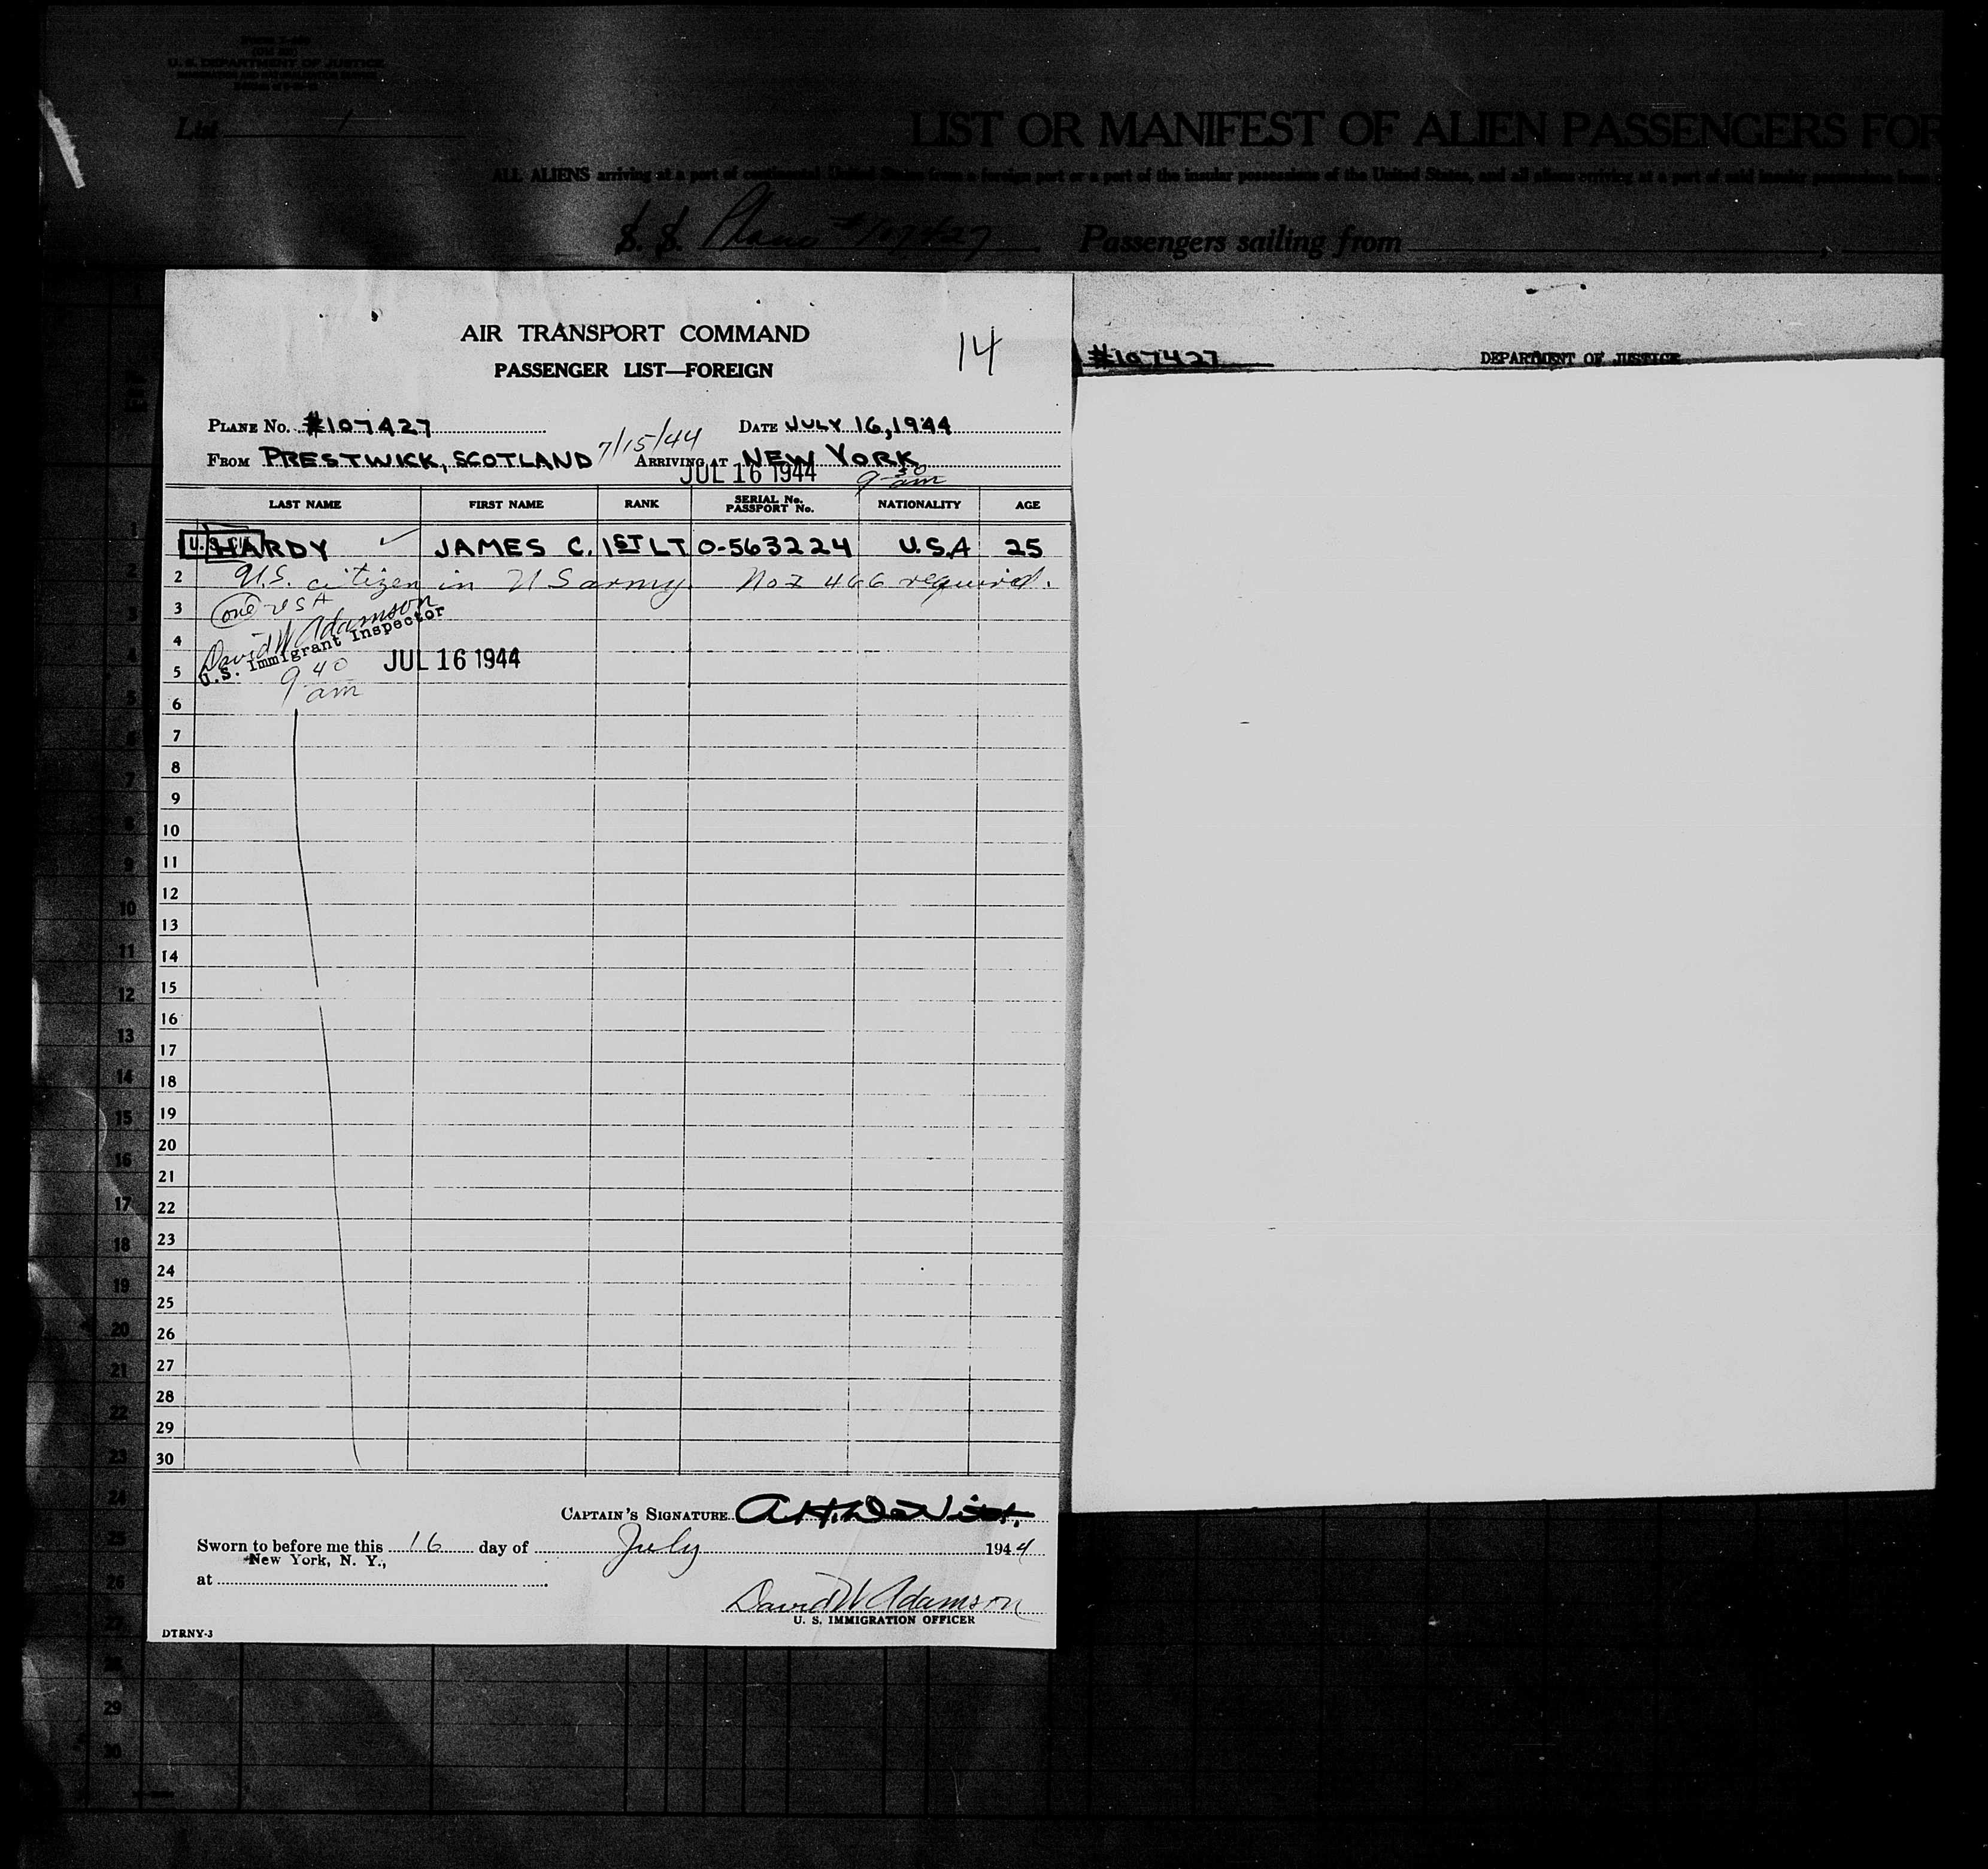 U. S. DEPARTMENT OF JUSTICE
List 1
LIST OR MANIFEST OF ALIEN PASSENGERS FOR
ALL ALIENS arriving at a port of continental United States from a foreign port or a port of the insular possessions of the United States, and all aliens arriving at a port of said insular possessions from
S. S. Plane #107427 Passengers sailing from
#107427 DEPARTMENT OF JUSTICE
AIR TRANSPORT COMMAND
14
PASSENGER LIST—FOREIGN
PLANE No. #107427 DATE JULY 16, 1944
FROM PRESTWICK, SCOTLAND 7/15/44 ARRIVING AT NEW YORK
JUL 16 1944 9 30 am
LAST NAME FIRST NAME RANK SERIAL No. PASSPORT No. NATIONALITY AGE
HARDY ✓ JAMES C. 1ST LT O-563224 U.S.A 25
2 U.S. citizen in US army. No I 466 required.
3 One USA
David W Adamson
4 U.S. Immigrant Inspector
5 9 40 am JUL 16 1944
6
7
8
9
10
11
12
13
14
15
16
17
18
19
20
21
22
23
24
25
26
27
28
29
30
CAPTAIN'S SIGNATURE
Sworn to before me this 16 day of July 1944
New York, N. Y.,
at
David W Adamson
U. S. IMMIGRATION OFFICER
DTRNY-3